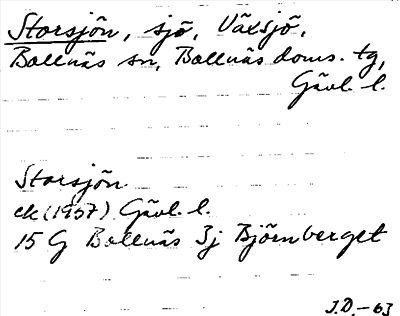 Storsjön, sjö, Växsjö,
Bollnäs sn, Bollnäs doms. tg,
Gävl. l.
Storsjön
ek (1957) Gävl. l.
15 G Bollnäs 3j Björnberget
J.D. -63